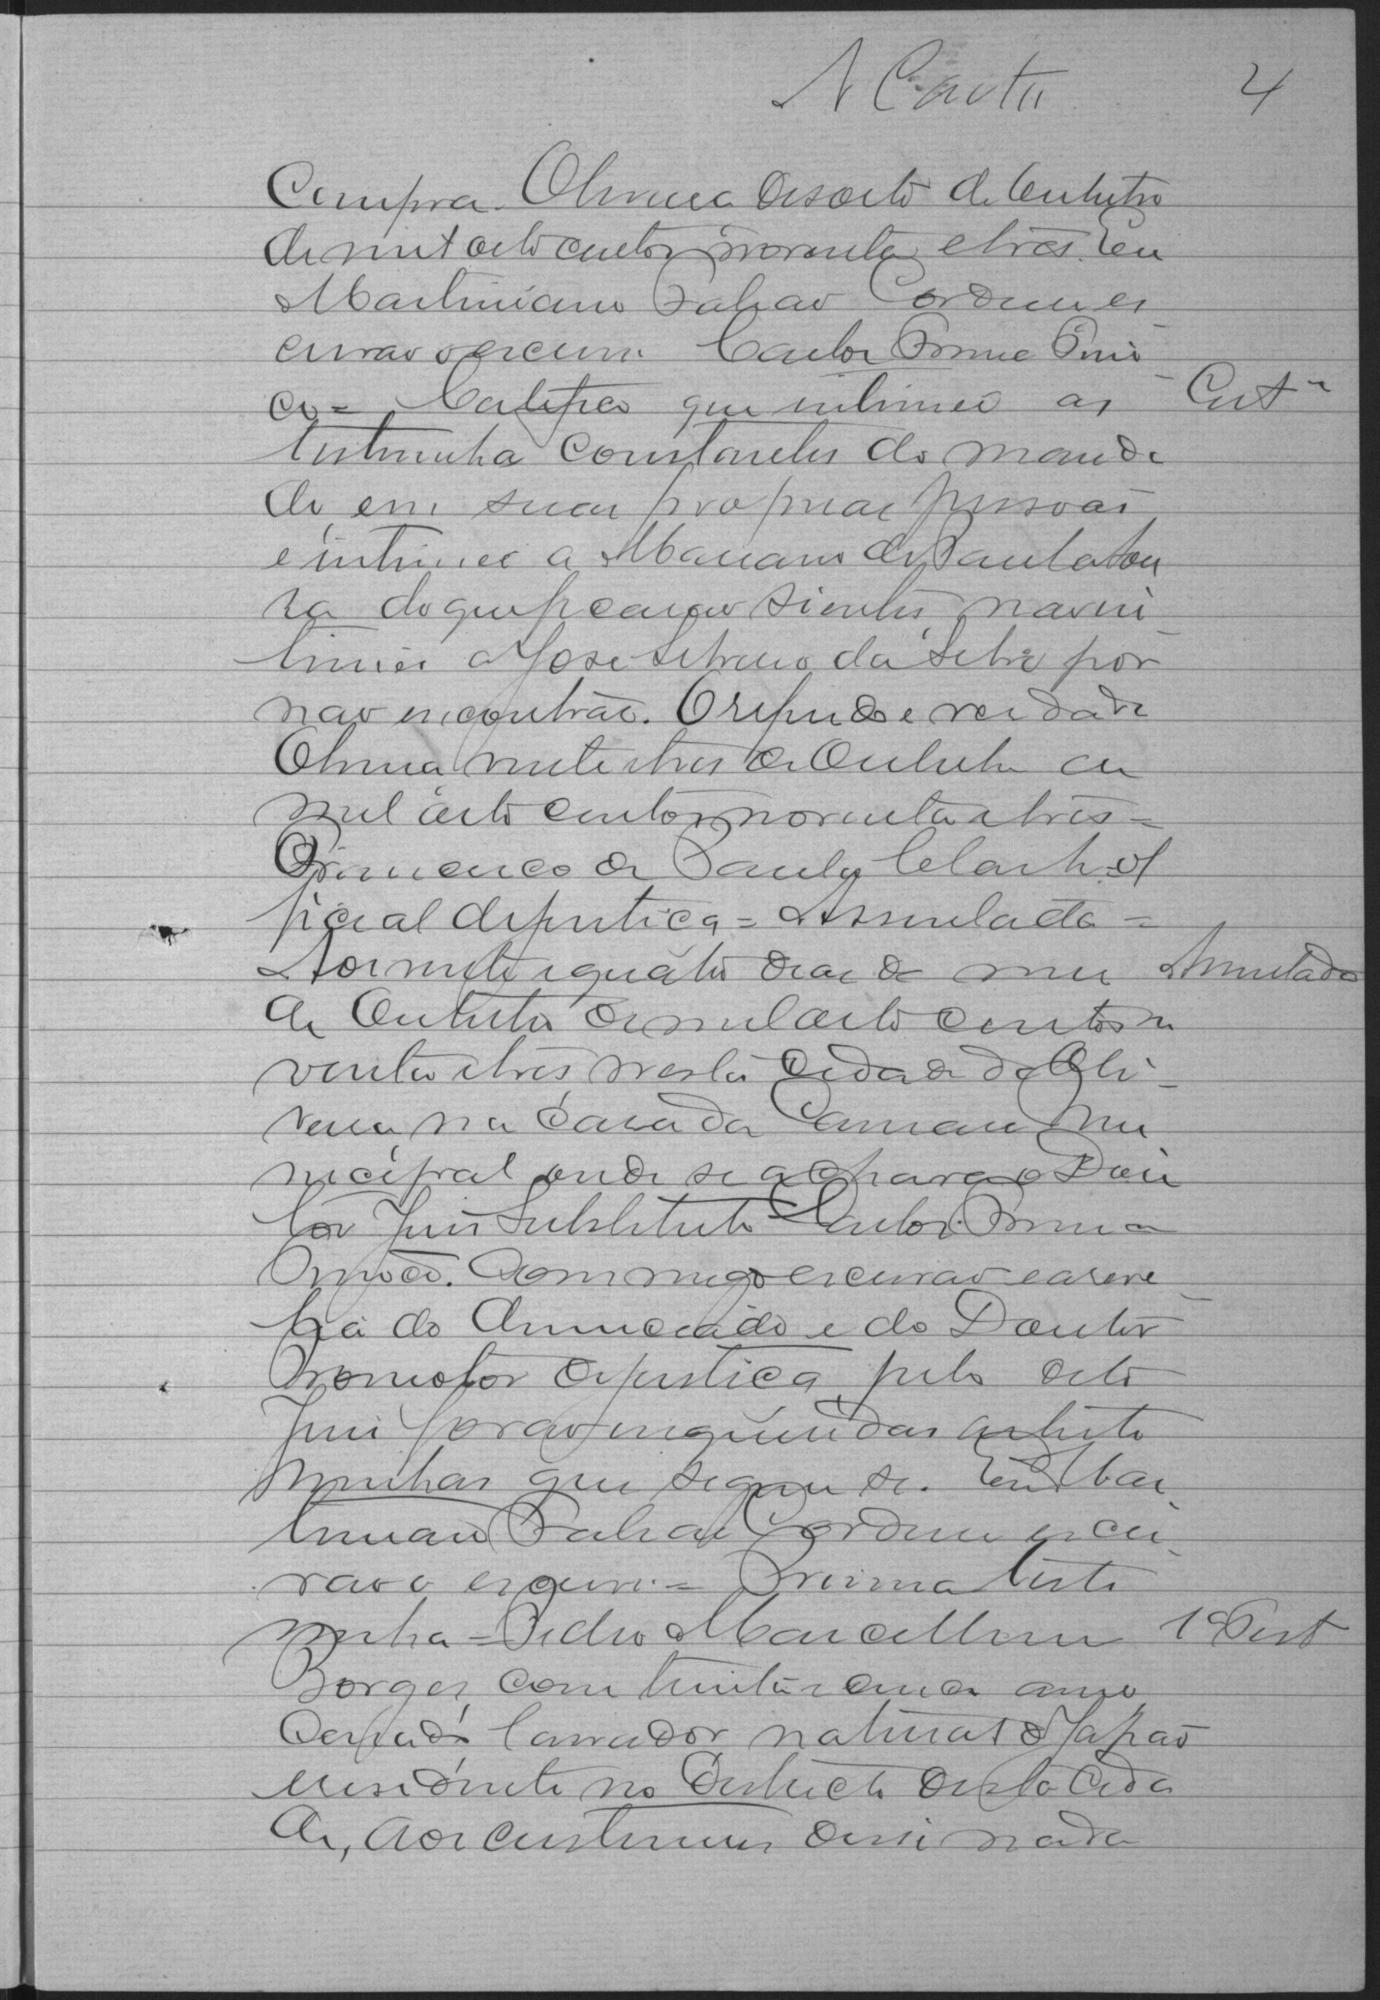 4
Cumpra. Oliveira desoito de Outubro
de mil oito centos noventa e tres. Eu
Martiniano Cordeiro es
crivao o escrevi. Carlos
co = Certifico que intimei as Cert.
testimunha constantes do manda
do em suas proprias pessoas
e intimei a Mariano de Paula Sou
za do que ficarao sientes, nao in
timei a Jose da Silva por
nao encontrao. O referido e verdade
Oliveira vinte e tres de Outubro de
mil oito centos noventa e tres =
Francisco de Paula of
ficial de justiça = Assentada =
Aos vinte e quatro dias do mes Assentada
de Outubro de mil oito centos no
venta e tres nesta Cidade de Oli-
veira na casa da Camara Mu
nicipal onde se achava o Dou
tor Juis Substituto Carlos
commigo escrivao e a reve-
lia do denunciado e do Doutor
Promotor de justiça, pelo dito
Juis forao inquiridas as teste
munhas que seguem se. Eu Mar
tiniano Cordeiro escri
vao o escrevi. = Primeira teste
munha = Pedro Marcellino 1ª Test
Borges, com trinta e annos
Casado lavrador natural do Japão
residente no Districto desta Cida
de, aos custumes disse nada